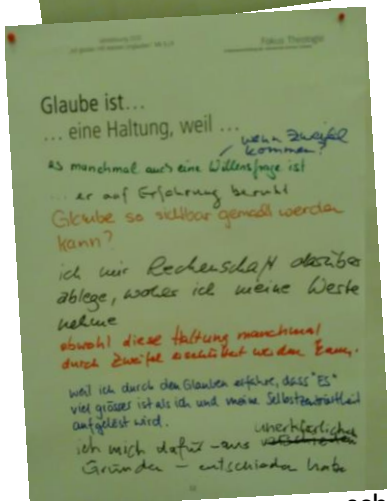 Fokus Theologie
Glaube ist...
... eine Haltung, weil ...
wenn Zweifel
kommen?
es manchmal auch eine Willensfrage ist
... er auf Erfahrung beruht
Glaube so sichtbar gemacht werden
kann?
ich mir Rechenschaft darüber
ablege, woher ich meine Werte
nehme
obwohl diese Haltung manchmal
durch Zweifel erschüttert werden kann.
weil ich durch den Glauben erfahre, dass "Es"
viel grösser ist als ich und meine Selbstzentriertheit
aufgelöst wird.
unerklärlichen
ich mich dafür - aus
Gründen - entschieden habe